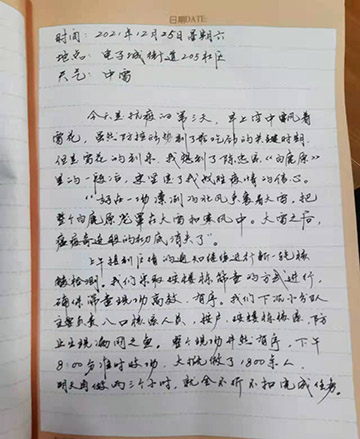 日期DATE:
时间: 2021年12月25日星期六
地点: 电子城街道205社区
天气: 中雪
今天是抗疫的第三天,早上空中飘着
雪花,虽然防控到了最吃劲的关键时期,
但是雪花的到来,我想到了陈忠实《白鹿原》
里的一段话,更坚定了我战胜疫情的信心。
“好在一场凛冽的北风裹着大雪,把
整个白鹿原笼罩在大雪和寒风中。大雪之后,
瘟疫奇迹般的彻底消失了”。
上午接到区情通知继续进行新一轮核
酸检测。我们采取挨楼栋筛查的方式进行,
确保筛查现场高效、有序。我们下沉小分队
主要负责入口核查人员,挨户、挨楼栋核查,防
止出现漏网之鱼。整个现场井然有序,下午
8:00分准时收场,大概做了1800余人,
明天再做两三个小时,就会不折不扣完成任务。